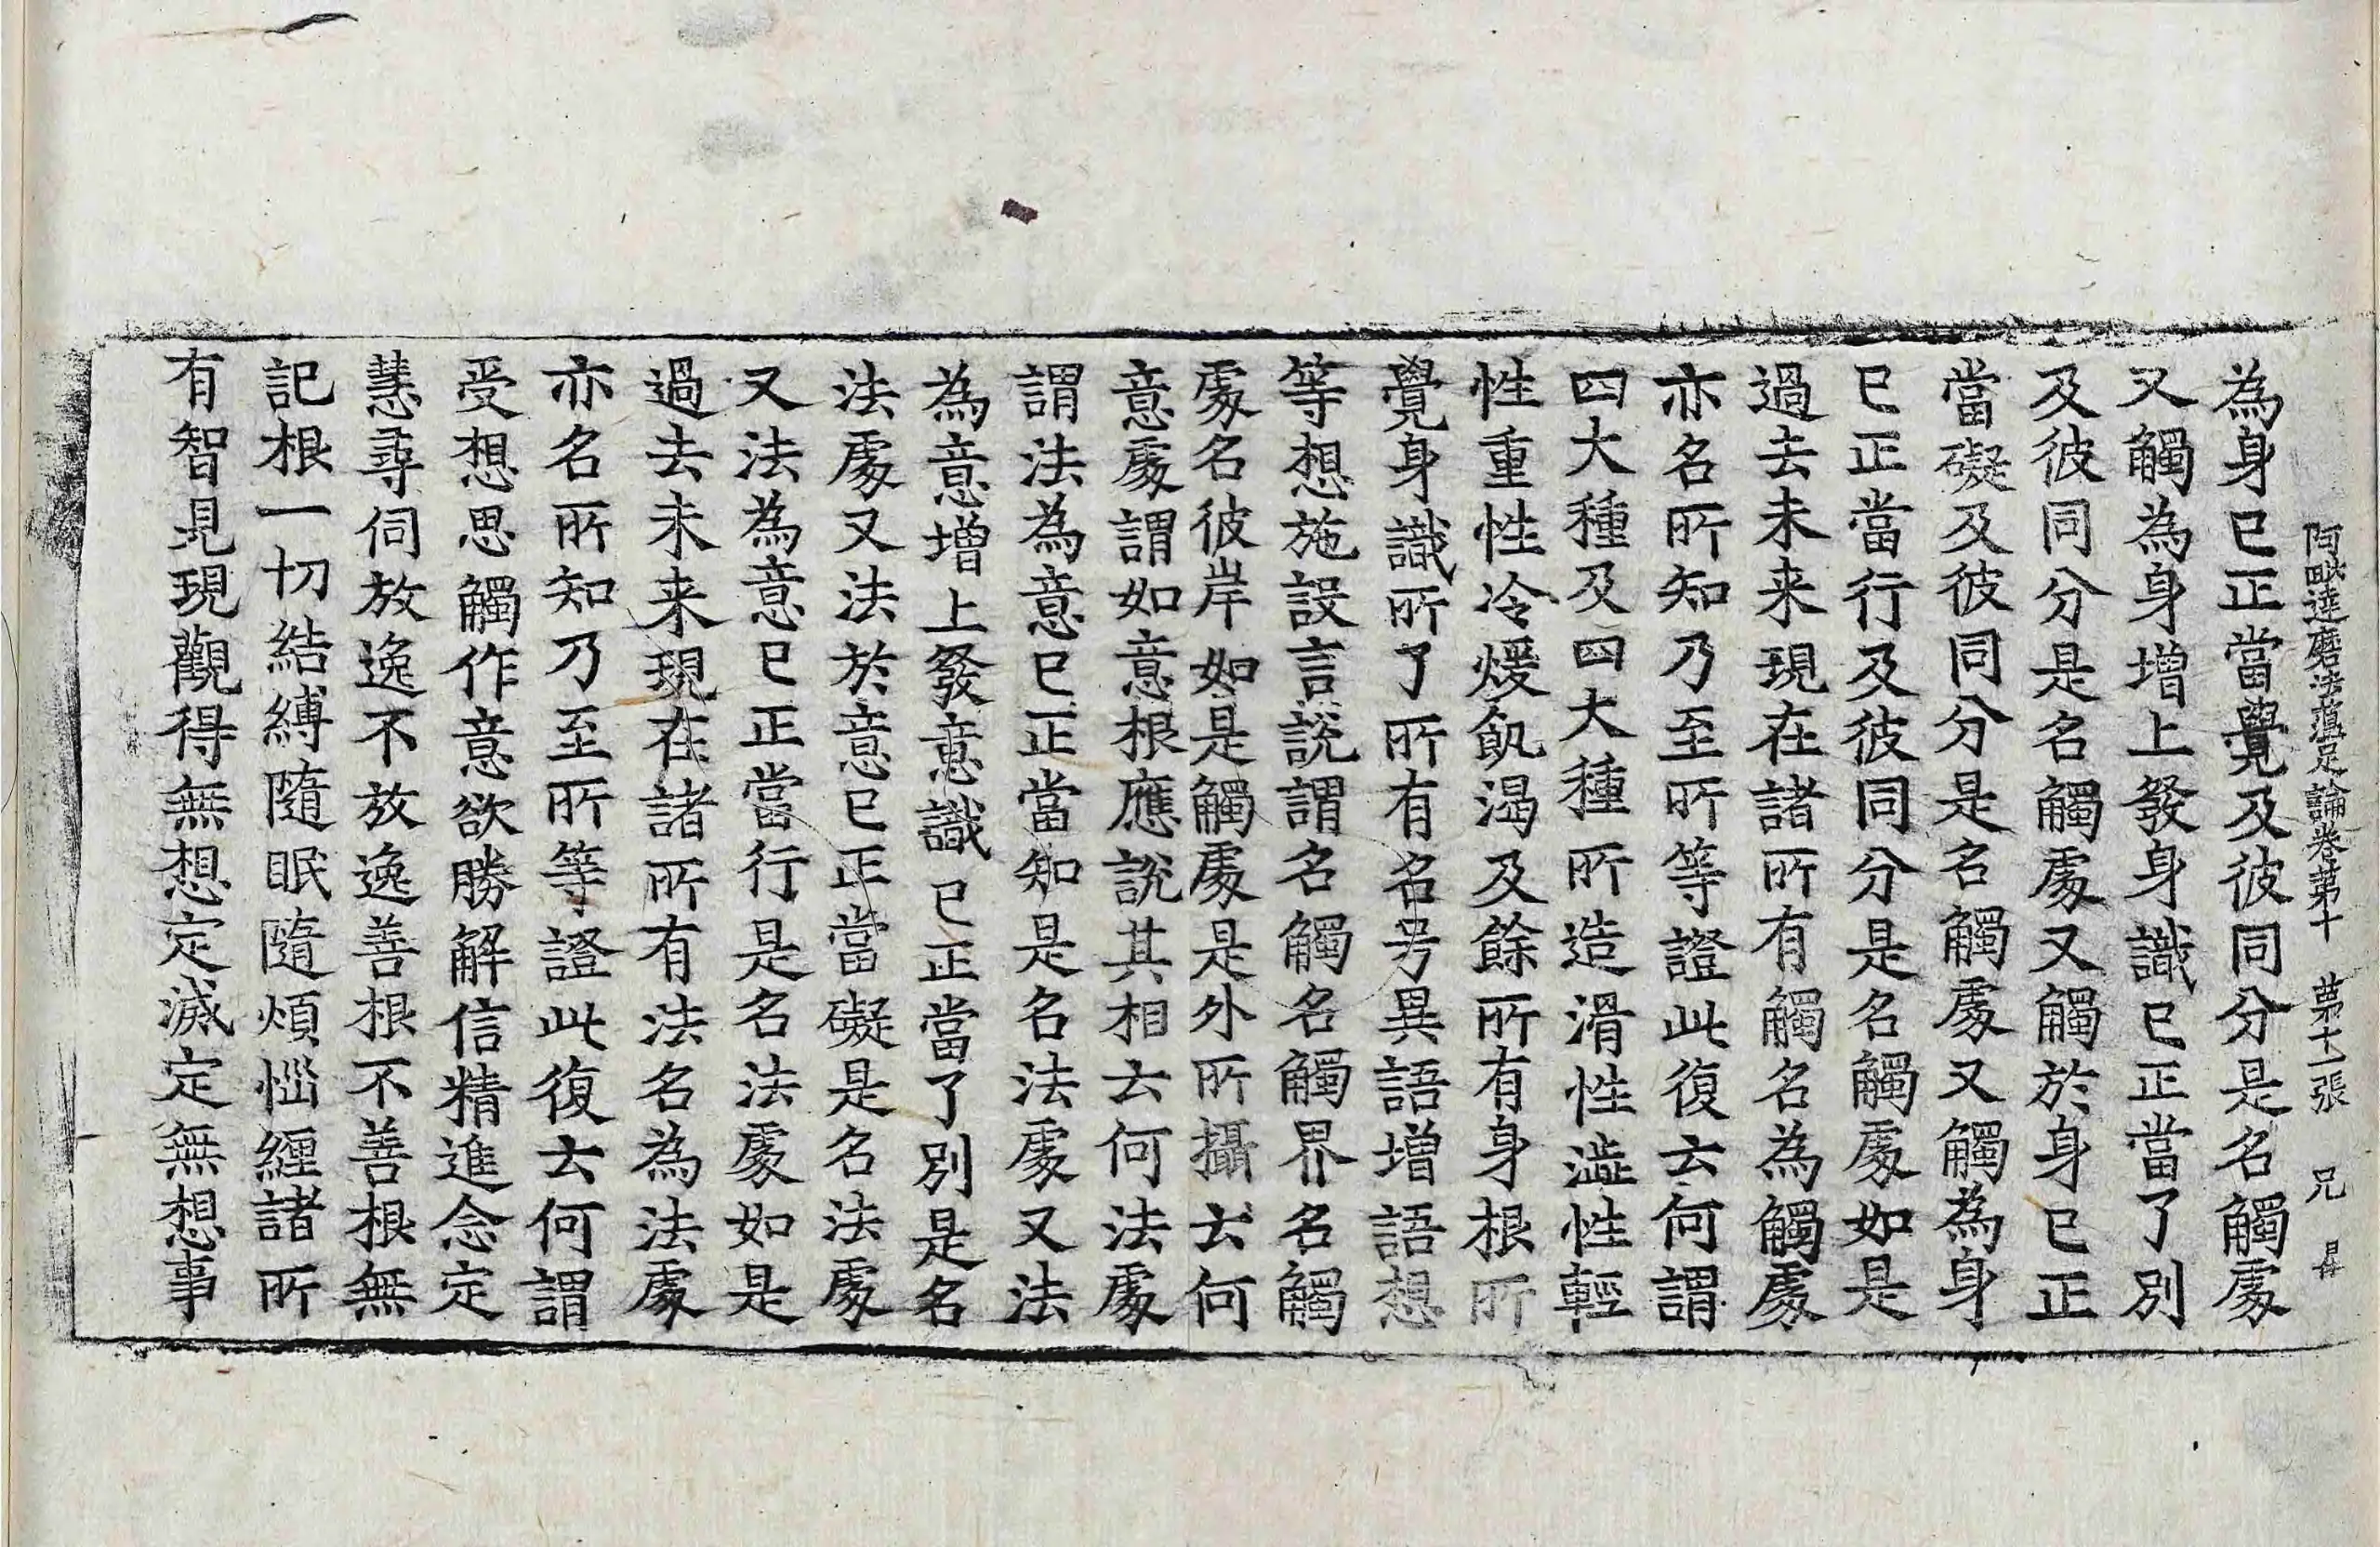 阿毗達磨法蘊足論卷第十　第十一張　兄　昇
為身已正當覺及彼同分是名觸處
又觸為身增上發身識已正當了別
及彼同分是名觸處又觸於身已正
當礙及彼同分是名觸處又觸為身
已正當行及彼同分是名觸處如是
過去未来現在諸所有觸名為觸處
亦名所知乃至所等證此復云何謂
四大種及四大種所造滑性澁性輕
性重性冷煖飢渴及餘所有身根所
覺身識所了所有名号異語增語想
等想施設言說謂名觸名觸界名觸
處名彼岸如是觸處是外所攝云何
意處謂如意根應說其相云何法處
謂法為意已正當知是名法處又法
為意增上發意識已正當了別是名
法處又法於意已正當礙是名法處
又法為意已正當行是名法處如是
過去未来現在諸所有法名為法處
亦名所知乃至所等證此復云何謂
受想思觸作意欲勝解信精進念定
慧尋伺放逸不放逸善根不善根無
記根一切結縛隨眠隨煩惱纏諸所
有智見現觀得無想定滅定無想事